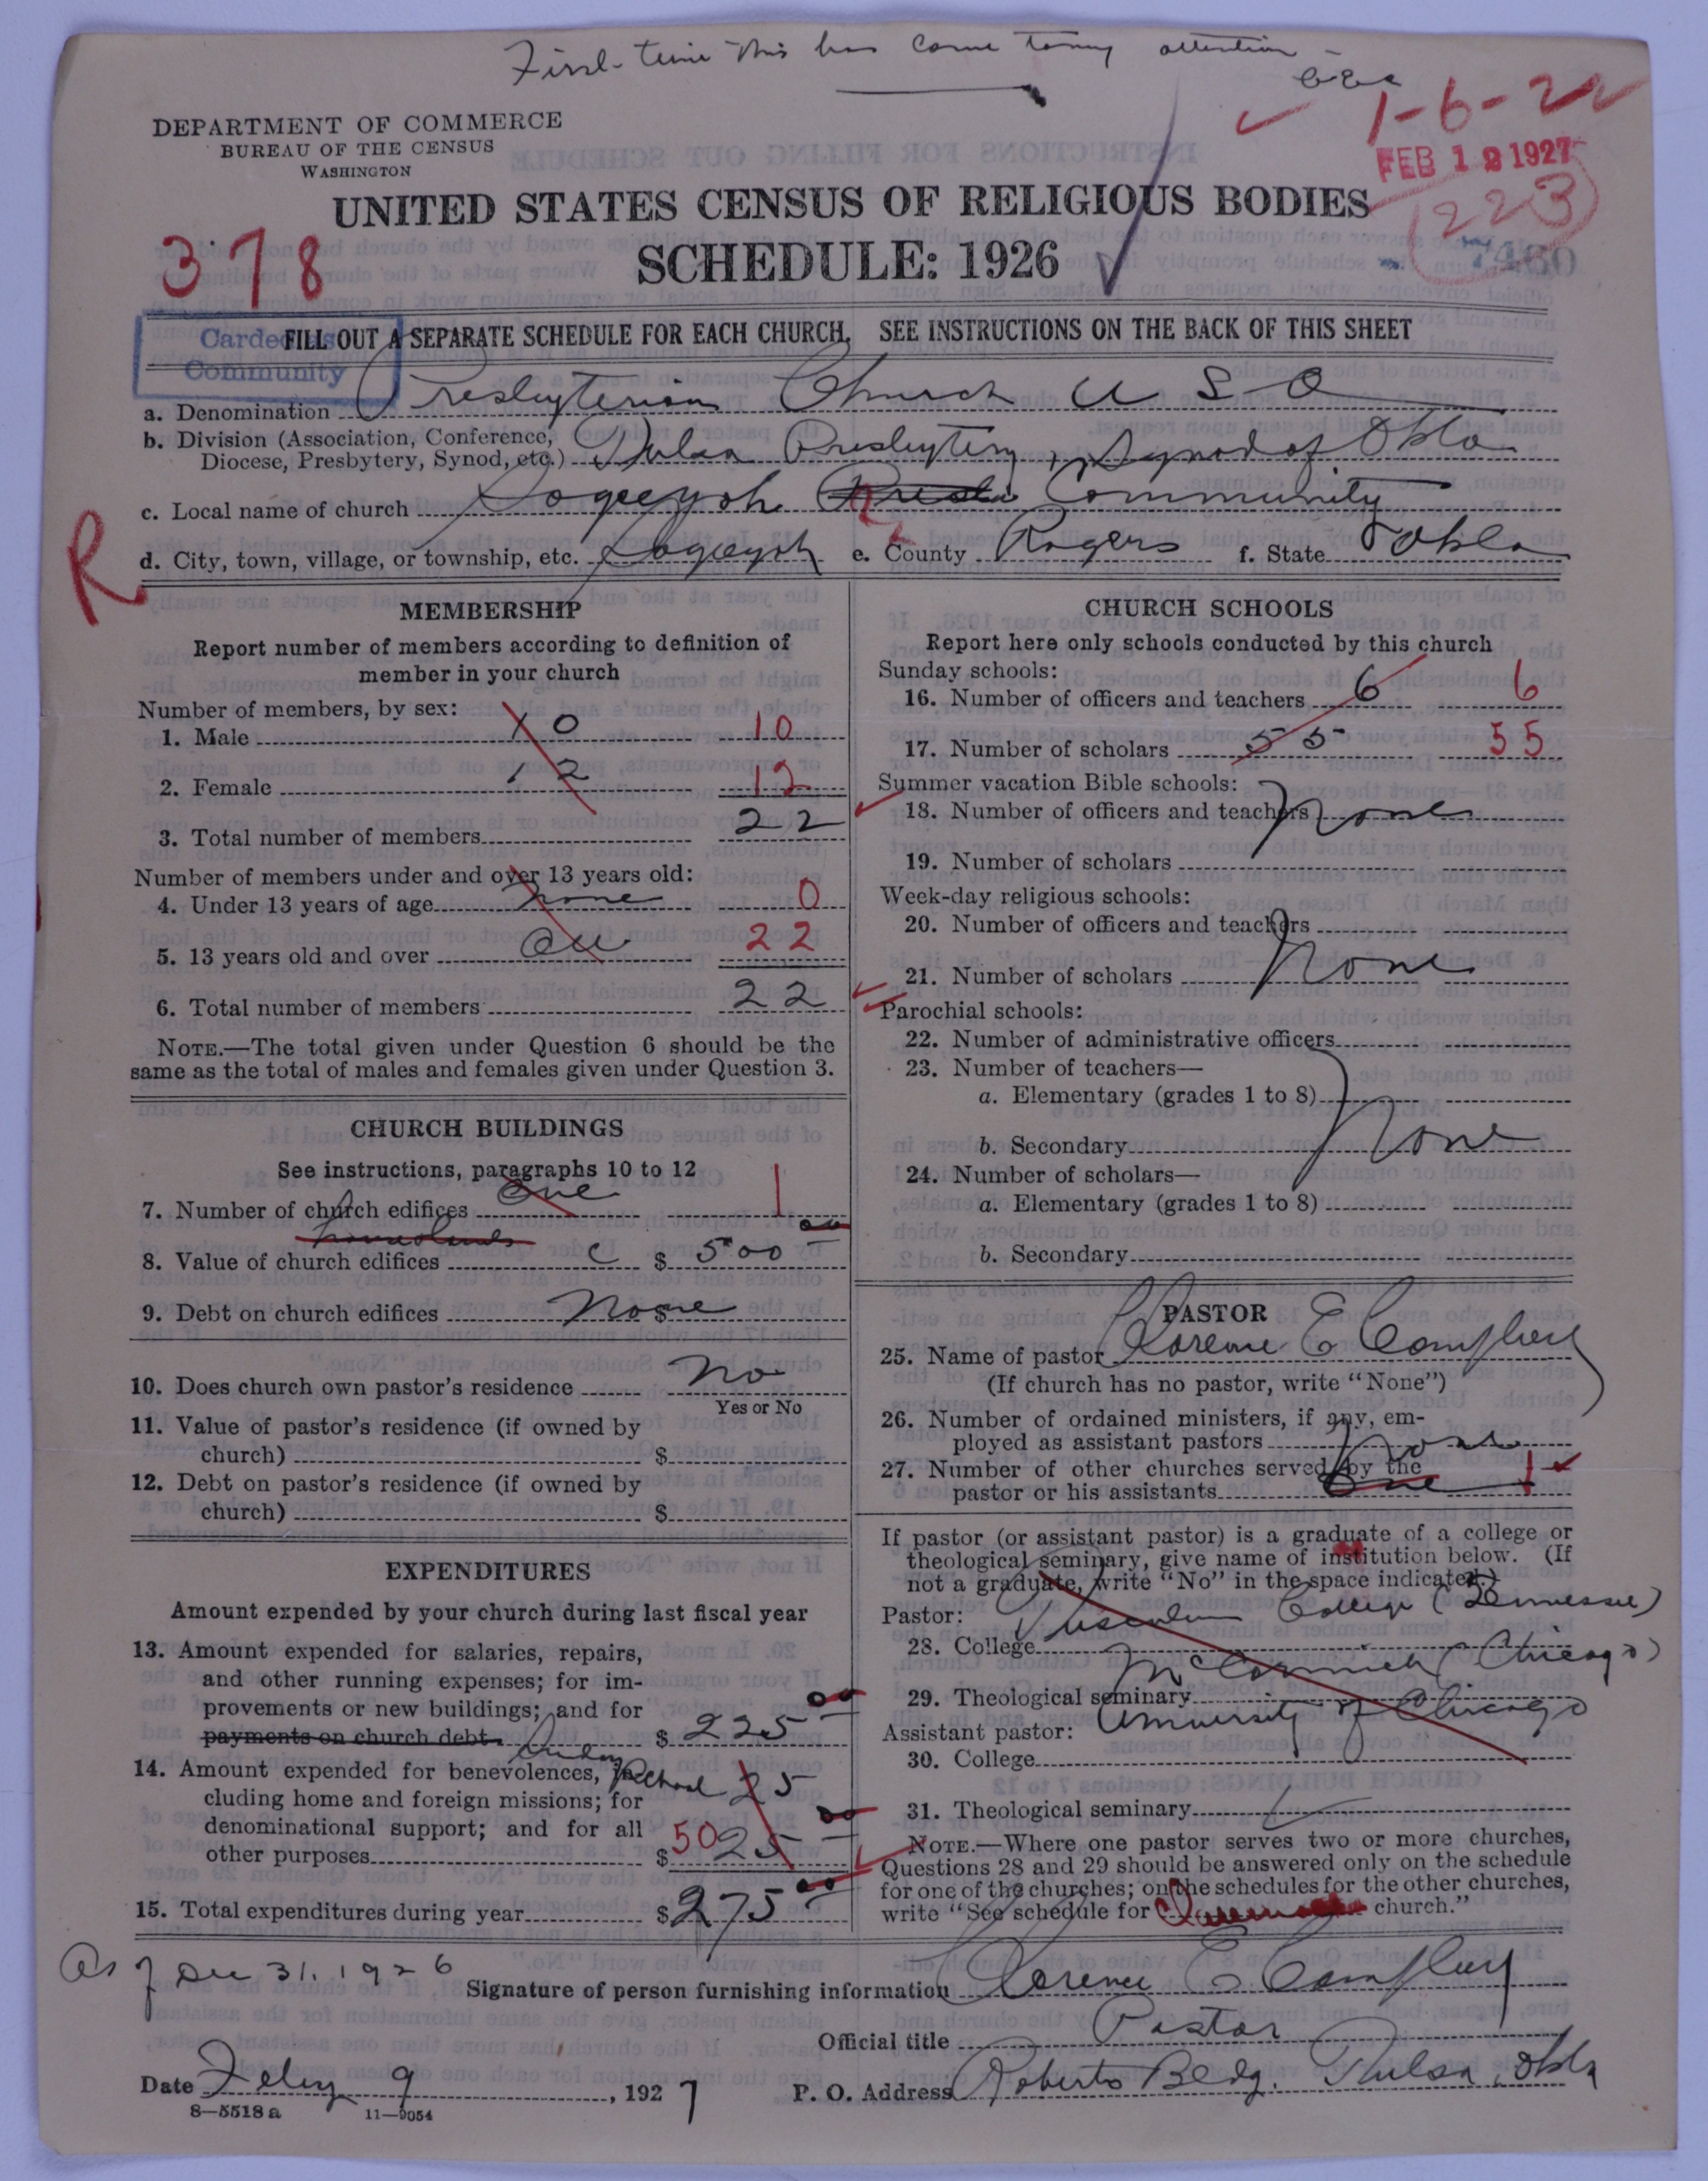 First time this has come to my attention -
CEC
1-6-22
FEB 12 1927
223
7460
DEPARTMENT OF COMMERCE
BUREAU OF THE CENSUS
WASHINGTON
UNITED STATES CENSUS OF RELIGIOUS BODIES
SCHEDULE: 1926
378
Carded as
Community
FILL OUT A SEPARATE SCHEDULE FOR EACH CHURCH. SEE INSTRUCTIONS ON THE BACK OF THIS SHEET
a. Denomination Presbyterian Church U S A
b. Division (Association, Conference,
Diocese, Presbytery, Synod, etc.) Tulsa Presbytery, Synod of Okla
c. Local name of church Sageeyah Community
d. City, town, village, or township, etc. Sageeyah e. County Rogers f. State Okla
R
MEMBERSHIP
Report number of members according to definition of
member in your church
Number of members, by sex:
1. Male 10 10
2. Female 12 12
3. Total number of members 22
Number of members under and over 13 years old:
4. Under 13 years of age none 0
5. 13 years old and over all 22
6. Total number of members 22
NOTE.—The total given under Question 6 should be the
same as the total of males and females given under Question 3.
CHURCH BUILDINGS
See instructions, paragraphs 10 to 12
7. Number of church edifices one 1
8. Value of church edifices c $ 500 00
9. Debt on church edifices None $
10. Does church own pastor's residence No
Yes or No
11. Value of pastor's residence (if owned by
church) $
12. Debt on pastor's residence (if owned by
church) $
EXPENDITURES
Amount expended by your church during last fiscal year
13. Amount expended for salaries, repairs,
and other running expenses; for im-
provements or new buildings; and for
payments on church debt $ 225 00
Sunday
14. Amount expended for benevolences, in- School 25
cluding home and foreign missions; for
denominational support; and for all
other purposes $ 50 25 00
15. Total expenditures during year $ 275 00
CHURCH SCHOOLS
Report here only schools conducted by this church
Sunday schools:
16. Number of officers and teachers 6 6
17. Number of scholars 55 55
Summer vacation Bible schools:
18. Number of officers and teachers None
19. Number of scholars
Week-day religious schools:
20. Number of officers and teachers
21. Number of scholars None
Parochial schools:
22. Number of administrative officers
23. Number of teachers—
a. Elementary (grades 1 to 8)
b. Secondary None
24. Number of scholars—
a. Elementary (grades 1 to 8)
b. Secondary
PASTOR
25. Name of pastor Clarence E Compbell
(If church has no pastor, write "None")
26. Number of ordained ministers, if any, em-
ployed as assistant pastors None
27. Number of other churches served by the
pastor or his assistants One 1
If pastor (or assistant pastor) is a graduate of a college or
theological seminary, give name of institution below. (If
not a graduate, write "No" in the space indicated.)
Pastor: Tusculum College (Tennessee)
28. College
McCormick (Chicago)
29. Theological seminary
University of Chicago
Assistant pastor:
30. College
31. Theological seminary
NOTE.—Where one pastor serves two or more churches,
Questions 28 and 29 should be answered only on the schedule
for one of the churches; on the schedules for the other churches,
write "See schedule for church."
As of Dec 31, 1926
Signature of person furnishing information Clarence E Compbell
Official title Pastor
Date Feby 9, 1927 P. O. Address Roberts Bldg. Tulsa, Okla
8—5518 a 11—9054